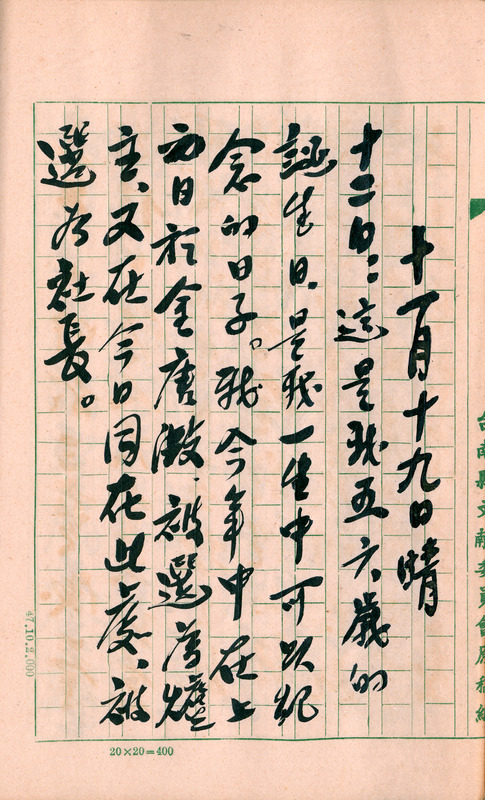 十一月十九日晴
十二日：這是我五六歲的
誕生日，是我一生中可以紀
念的日子。我今年中在上
元日於金唐殿，被選為爐
主，又在今日同在此處，被
選為社長。
台南縣文獻委員會原稿紙
47.10.2,000
20×20=400